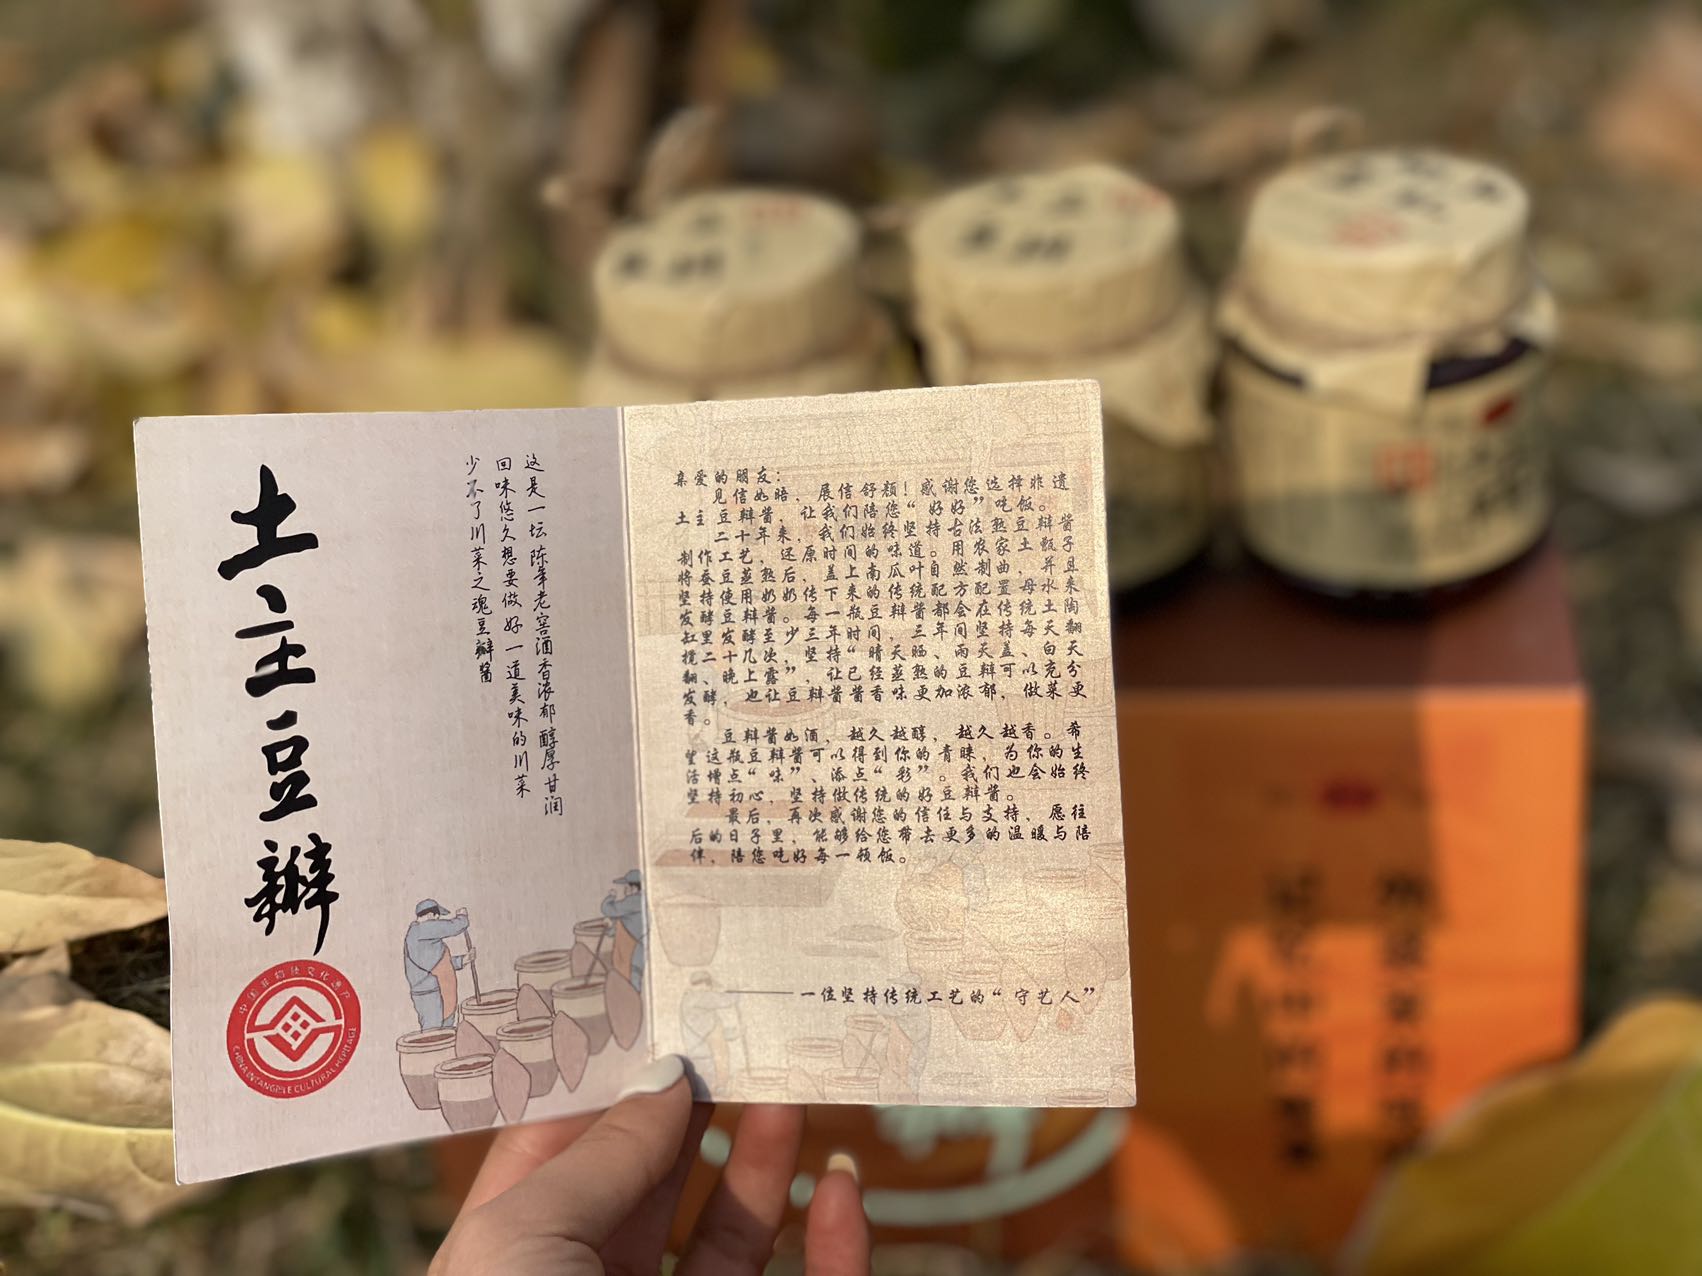 土主豆瓣
这是一坛陈年老窖酒香浓郁醇厚甘润
回味悠久想要做好一道美味的川菜
少不了川菜之魂豆瓣酱
中国非物质文化遗产
CHINA INTANGIBLE CULTURAL HERITAGE
亲爱的朋友：
见信如晤，展信舒颜！感谢您选择非遗
土主豆瓣酱，让我们陪您“好好”吃饭。
二十年来，我们始终坚持古法熟豆瓣酱
制作工艺，还原时间的味道。用农家土甑子
将蚕豆蒸熟后，盖上南瓜叶自然制曲，并且
坚持使用奶奶传下来的传统配方配置母水来
发酵豆瓣酱。每一瓶豆瓣酱都会在传统土陶
缸里发酵至少三年时间，三年间坚持每天翻
搅二十几次，坚持“晴天晒、雨天盖、白天
翻、晚上露”，让已经蒸熟的豆瓣可以充分
发酵，也让豆瓣酱酱香味更加浓郁，做菜更
香。
豆瓣酱如酒，越久越醇，越久越香。希
望这瓶豆瓣酱可以得到你的青睐，为你的生
活增点“味”、添点“彩”。我们也会始终
坚持初心，坚持做传统的好豆瓣酱。
最后，再次感谢您的信任与支持，愿往
后的日子里，能够给您带去更多的温暖与陪
伴，陪您吃好每一顿饭。
——一位坚持传统工艺的“守艺人”